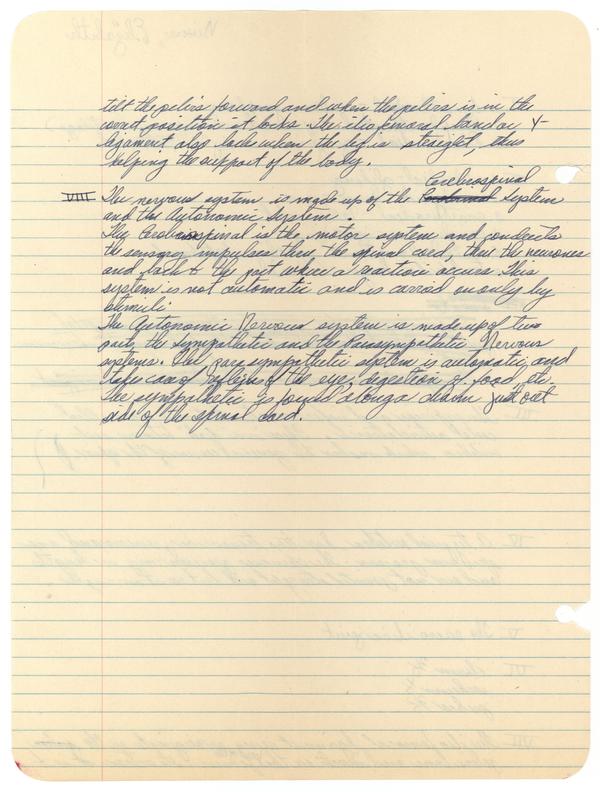 tilt the pelvis forward and when the pelvis is in the
correct position it locks. The iliofemoral band or Y-
ligament also locks when the leg is straight, thus
helping the support of the body.
Cerebrospinal
VIII The nervous system is made up of the System
and the Autonomic System.
The Cerebrospinal is the motor system and conducts
the sensory impulses thru the spinal cord, thru the neurones
and back to the part where a reaction occurs. This
system is not automatic and is carried on only by
stimuli.
The Autonomic Nervous system is made up of two
parts, the Sympathetic and the Parasympathetic Nervous
systems. The parasympathetic system is automatic and
takes care of reflexes of the eye, digestion of food, etc.
The sympathetic is found along a chain just out
side of the spinal cord.